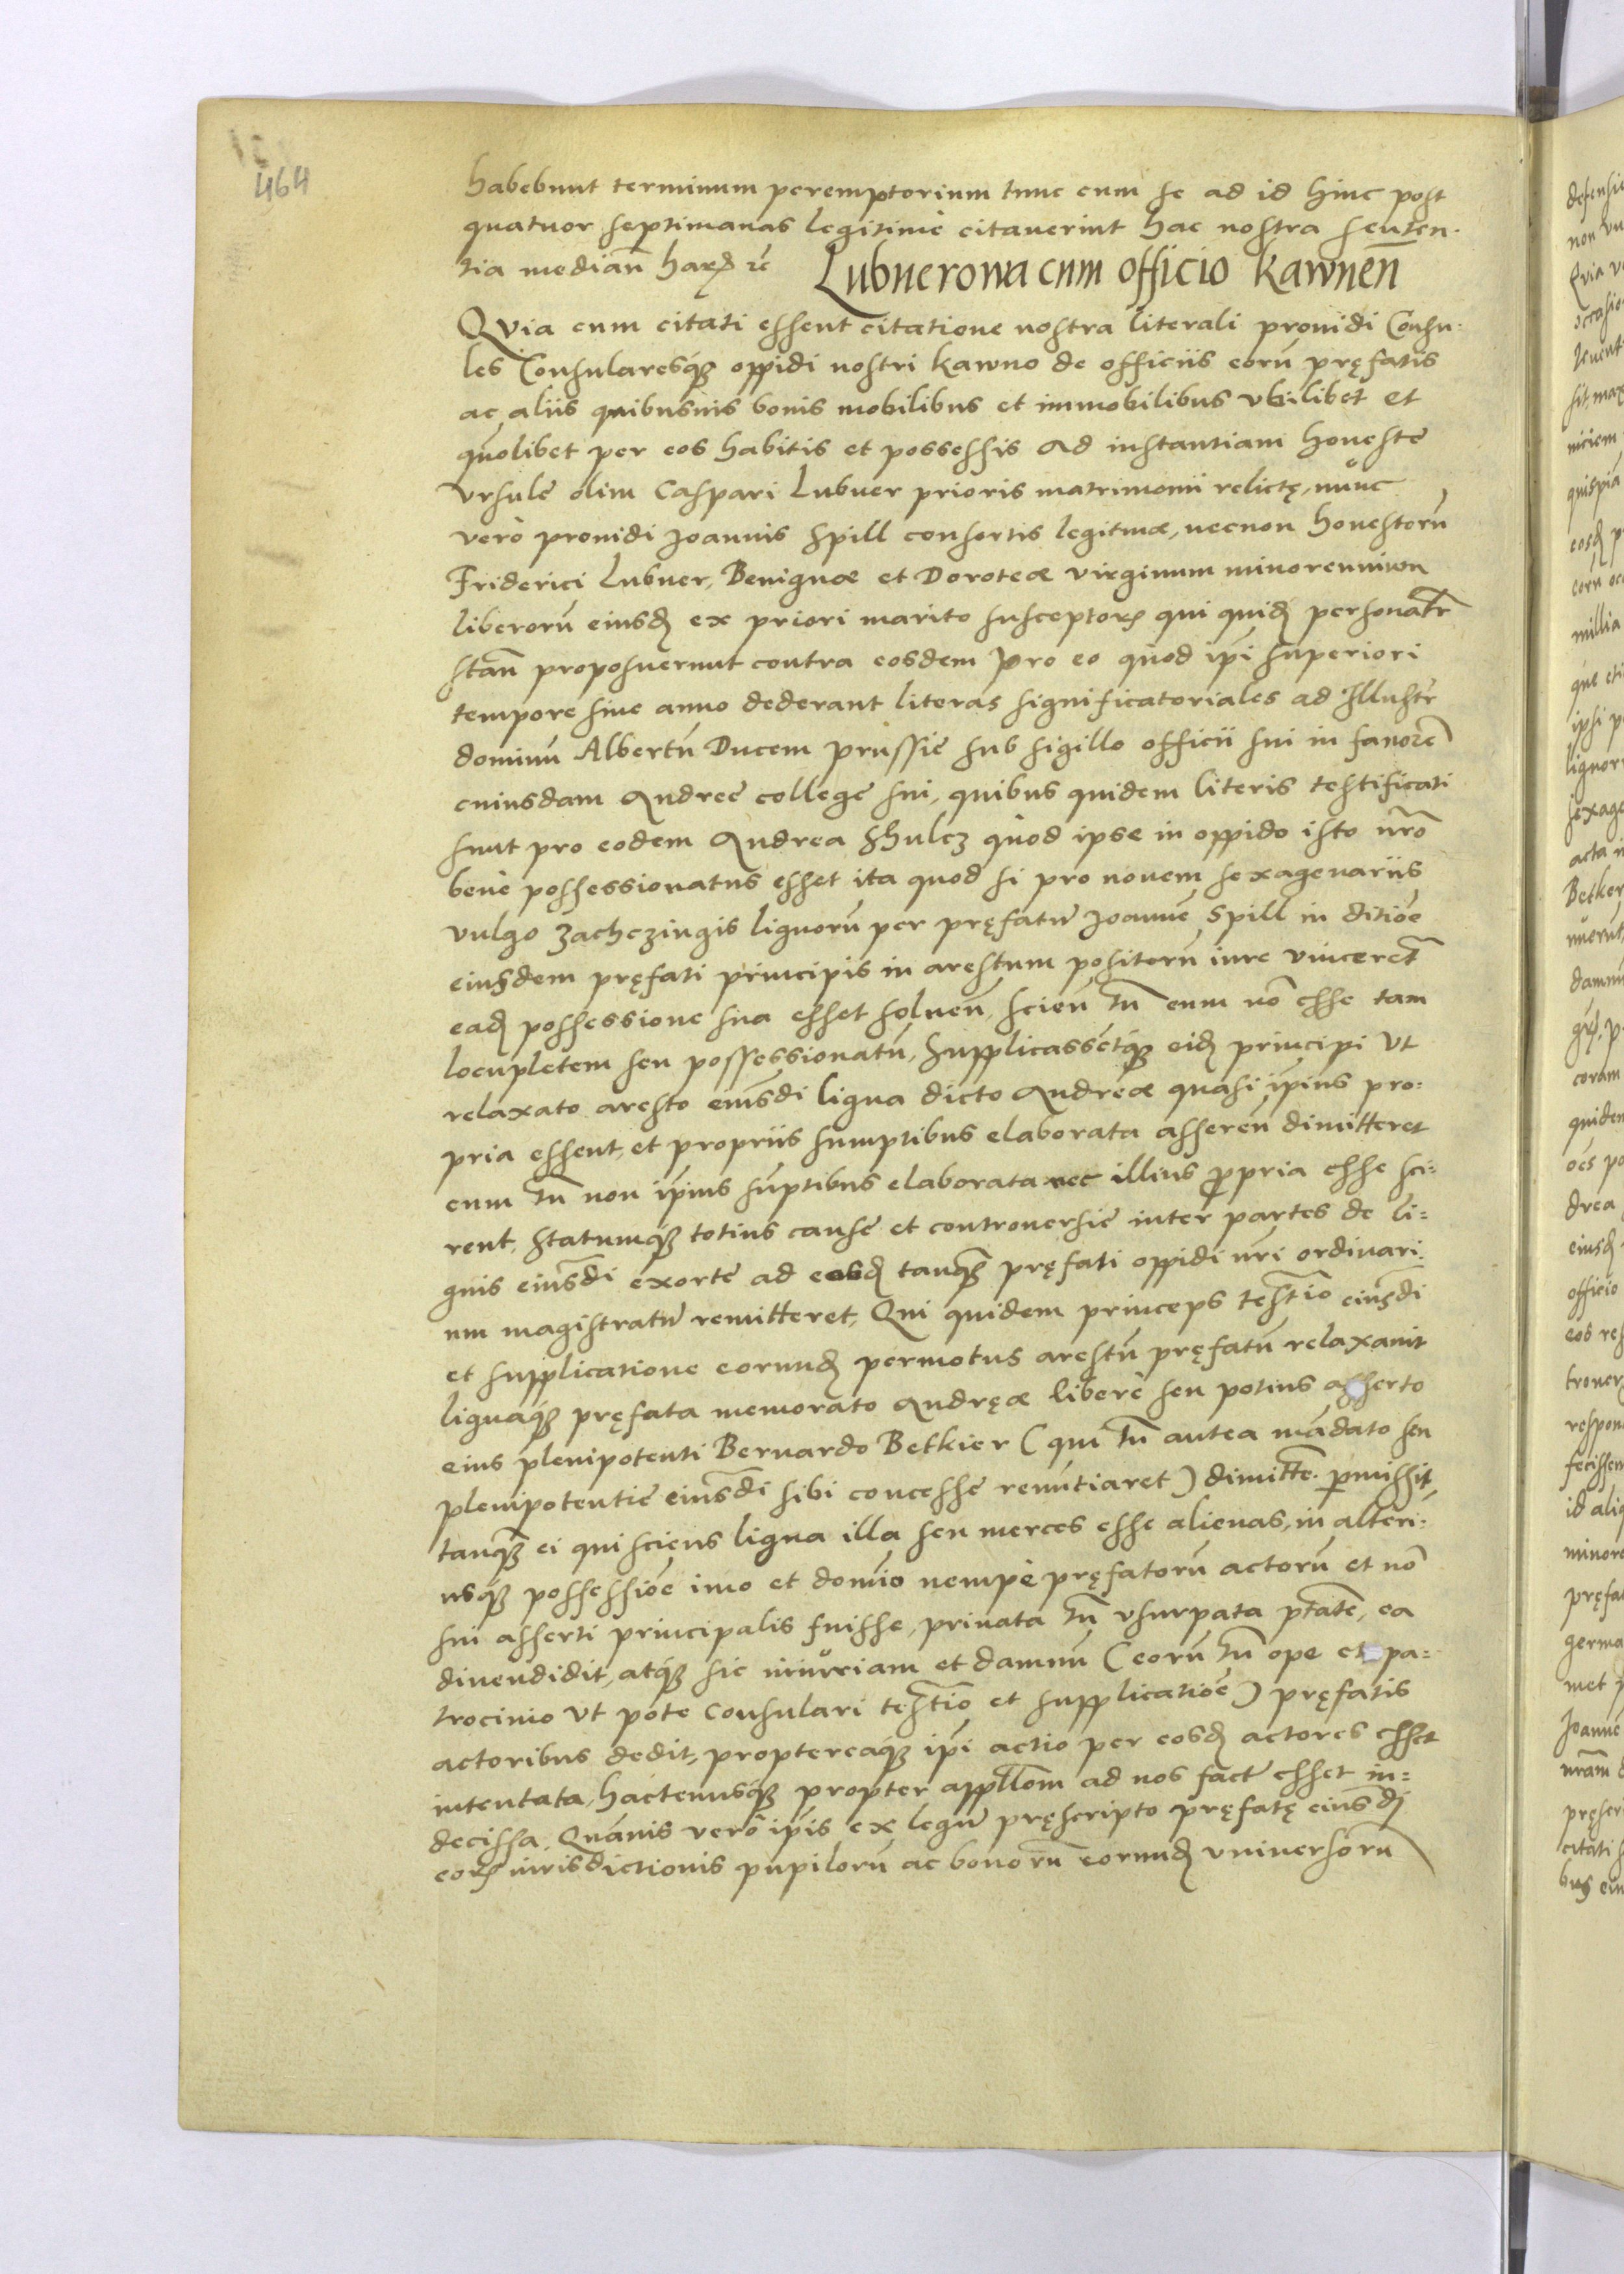 464
habebunt terminum peremptorium tunc cum se ad id hinc post
quatuor septimanas legitime citaverint hac nostra senten-
tia median̄ harꝝ ꝛc̄ Lubnerowa cum officio Kawnen̄
Qvia cum citati essent citatione nostra literali providi Consu-
les Consularesq́ꝫ oppidi nostri Kawno de officiis eorū pręfatis
ac aliis quibusuis bonis mobilibus et immobilibus vbilibet et
quolibet per eos habitis et possessis Ad instantiam honeste
Vrsule olim Caspari Lubner prioris matrimonii relictę, nunc
verò providi Joannis Spill consortis legitmæ, necnon honestorū
Friderici Lubner, Benignæ et Doroteæ virginum minorennium
liberorū eiusdꝫ ex priori marito susceptorꝝ qui quidꝫ personatr̄
stan̄ proposuerunt contra eosdem Pro eo quod ip̄i superiori
tempore sive anno dederant literas significatoriales ad Illustr̄
dominū Albertū Ducem Prussie sub sigillo officii sui in favorē
cuiusdam Andree college sui, quibus quidem literis testificati
sunt pro eodem Andrea Shulcz quod ipse in oppido isto nr̄o
bene possessionatus esset ita quod si pro novem sexagenariis
vulgo Zachczingis lignorū per pręfatū Joannē Spill in ditiōe
eiusdem pręfati principis in arestum positorū iure vinceret
eadꝫ possessione sua esset solven̄, scien̄ tn̄ eum nō esse tam
locupletem seu possessionatū, Supplicassentq́ꝫ eidꝫ principi Vt
relaxato aresto eiusd̄i ligna dicto Andreæ quasi ip̄ius pro-
pria essent, et propriis sumptibus elaborata asseren̄ dimitteret
cum tn̄ non ip̄ius sūptibus elaborata nec illius ꝓpria esse sci-
rent, Statumq́ꝫ totius cause et controversie inter partes de li-
gnis eiusd̄i exorte ad eosdꝫ tanqꝫ pręfati oppidi nr̄i ordinari-
um magistratū remitteret, Qui quidem princeps testīo eiusd̄i
et supplicatione eorundꝫ permotus arestū pręfatū relaxavit
lignaq́ꝫ pręfata memorato Andręæ liberè seu potius asserto
eius plenipotenti Bernardo Betkier (qui tn̄ antea mādato seu
plenipotentie eiusd̄i sibi concesse renūtiaret) dimittē ꝑmissit,
tanqꝫ ei qui sciens ligna illa seu merces esse alienas, in alteri-
usq́ꝫ possessiōe imo et domīo nempè pręfatorū actorū et nō
sui asserti principalis fuisse, privata tn̄ vsurpata ptātē, ea
divendidit, atq́ꝫ sic iniuriam et damnū (eorū tn̄ ope et pa-
trocinio Vt pote Consulari testīo et supplicatiōe) pręfatis
actoribus dedit, proptereaq́ꝫ ip̄i actio per eosdꝫ actores esset
intentata, hactenusq́ꝫ propter appllōm ad nos factā esset in-
decissa Quāvis verò ip̄is ex legū pręscripto pręfatę eiusdꝫ
eorꝝ iurisdictionis pupilorū ac bonorū eorundꝫ vniversorū